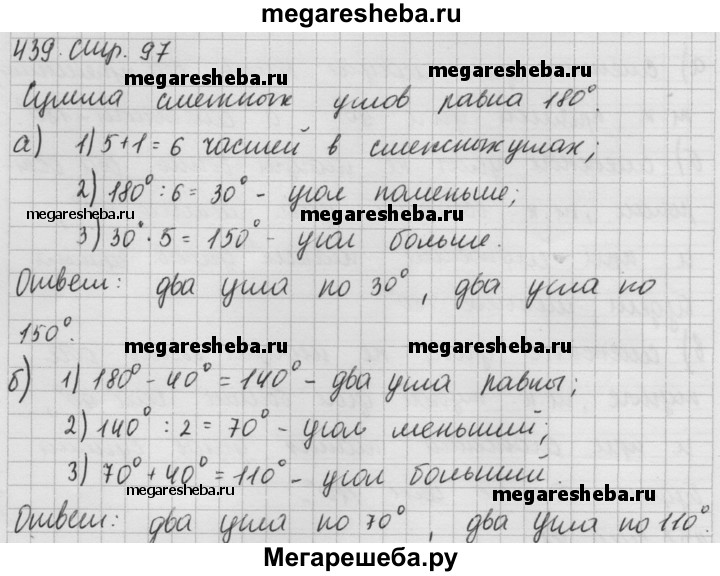 megaresheba.ru
439. стр. 97
megaresheba.ru megaresheba.ru
Сумма смежных углов равна 180°.
а) 1) 5+1 = 6 частей в смежных углах;
2) 180° : 6 = 30° - угол поменьше;
megaresheba.ru megaresheba.ru
3) 30° · 5 = 150° - угол больше.
Ответ: два угла по 30°, два угла по
150°.
megaresheba.ru megaresheba.ru
б) 1) 180° - 40° = 140° - два угла равны;
2) 140° : 2 = 70° - угол меньший;
3) 70° + 40° = 110° - угол больший.
megaresheba.ru megaresheba.ru
Ответ: два угла по 70°, два угла по 110°.
Мегарешеба.ру